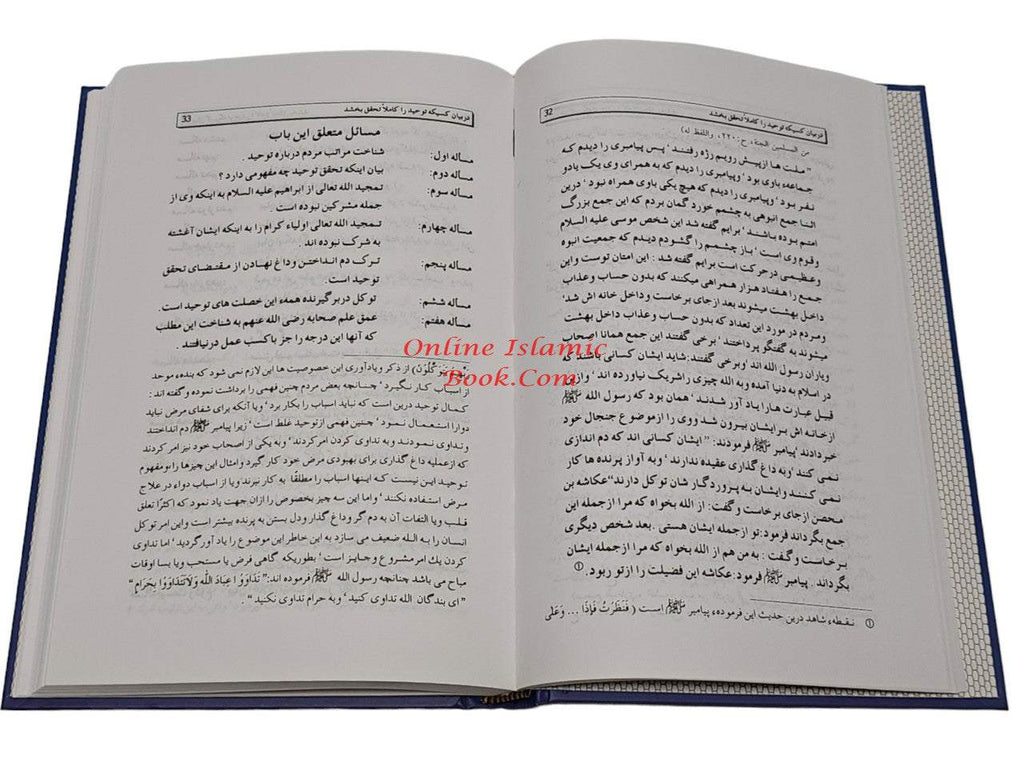 32
دربیان کسیکه توحید را کاملاً تحقق بخشد
من المسلمین الجنة، ح:۲۲۰، واللفظ له)
"ملت ها ازپیش رویم رژه رفتند' پس پیامبری را دیدم که
جماعهء باوی بود' وپیامبری را دیدم که به همرای وی یک یادو
نفر بود' وپیامبری را دیدم که هیچ یکی باوی همراه نبود' درین
اثنا جمع انبوهی به چشمم خورد گمان بردم که این جمع بزرگ
امتم بوده باشند' برایم گفته شد این شخص موسی علیه السلام
وقوم وی است' باز چشمم را گشودم دیدم که جمعیت انبوه
وعظیمی درحرکت است برایم گفته شد: این امتان توست و این
جمع را هفتاد هزار همراهی میکنند که بدون حساب وعذاب
داخل بهشت میشوند بعد ازجای برخاست وداخل خانه اش شد'
ومردم در مورد این تعداد که بدون حساب وعذاب داخل بهشت
میشوند به گفتگو پرداختند' برخی گفتند این جمع همانا اصحاب
ویاران رسول الله اند وبرخی گفتند: شاید ایشان کسانی باشند که
در اسلام به دنیا آمده وبه الله چیزی راشریک نیاورده اند' وازین
قبل عبارت ها را یاد آور شدند' همان بود که رسول الله ﷺ
ازخانه اش برایشان بیرون شد ووی را ازموضوع جنجال خود
خبردادند' پیامبر ﷺ فرمودند: "ایشان کسانی اند که دم اندازی
نمی کنند' وبه داغ گذاری عقیده ندارند' وبه آواز پرنده ها کار
نمی کنند وایشان به پروردگار شان توکل دارند" عکاشه بن
محصن ازجای برخاست وگفت: از الله بخواه که مرا ازجمله این
جمع بگرداند فرمود: تو ازجمله ایشان هستی. بعد شخص دیگری
برخاست و گفت: به من هم از الله بخواه که مرا ازجمله ایشان
بگرداند. پیامبر ﷺ فرمود: عکاشه این فضیلت را ازتو ربود. ①
① نقطهء شاهد درین حدیث این فرمودهء پیامبر ﷺ است (فَنَظَرتُ فَإِذَا ... وَعَلی
دربیان کسیکه توحید را کاملاً تحقق بخشد
33
مسائل متعلق این باب
مساله اول: شناخت مراتب مردم درباره توحید.
مساله دوم: بیان اینکه تحقق توحید چه مفهومی دارد؟
مساله سوم: تمجید الله تعالی از ابراهیم علیه السلام به اینکه وی از
جمله مشرکین نبوده است.
مساله چهارم: تمجید الله تعالی اولیاء کرام را به اینکه ایشان آغشته
به شرک نبوده اند.
مساله پنجم: ترک دم انداختن و داغ نهادن از مقتضای تحقق
توحید است.
مساله ششم: توکل دربرگیرنده همهء این خصلت های توحید است.
مساله هفتم: عمق علم صحابه رضی الله عنهم به شناخت این مطلب
که آنها این درجه را جز باکسب عمل درنیافتند.
از ذکر ویادآوری این خصوصیت ها این لازم نمی شود که بندهء موحد
از اسباب کار نگیرد' چنانچه بعض مردم چنین فهمی را برداشت نموده و گفته اند:
کمال توحید درین است که نباید اسباب را بکار برد' ویا آنکه برای شفای مرض نباید
دوارا استعمال نمود' چنین فهمی ازتوحید غلط است' زیرا پیامبر ﷺ دم انداختند
وتداوی نمودند وبه تداوی کردن امر کردند' وبه یکی از اصحاب خود نیز امر کردند
که ازعملیه داغ گذاری برای بهبودی مرض خود کار گیرد وامثال این چیزها را' ومفهوم
توحید این نیست که اینها اسباب را مطلقًا به کار نبرند ویا از اسباب دواء در علاج
مرض استفاده نکنند' واما این سه چیز بخصوص را ازان جهت یاد نمود که اکثرًا تعلق
قلب ویا التفات آن به دم گر وداغ گذار ودل بستن به پرنده بیشتر است واین امر توکل
انسان را به الله ضعیف می سازد به این خاطر این موضوع را یاد آور گردید' اما تداوی
کردن یك امر مشروع وجایز است' بطوریکه گاهی فرض یا مستحب ویا بسا اوقات
مباح می باشد چنانچه رسول الله ﷺ فرموده اند: "تَدَاوَوْا عِبَادَ اللَّه وَلَا تَتَدَاوَوْا بِحَرَامٍ"
"ای بندگان الله تداوی کنید' وبه حرام تداوی نکنید".
Online Islamic
Book.Com